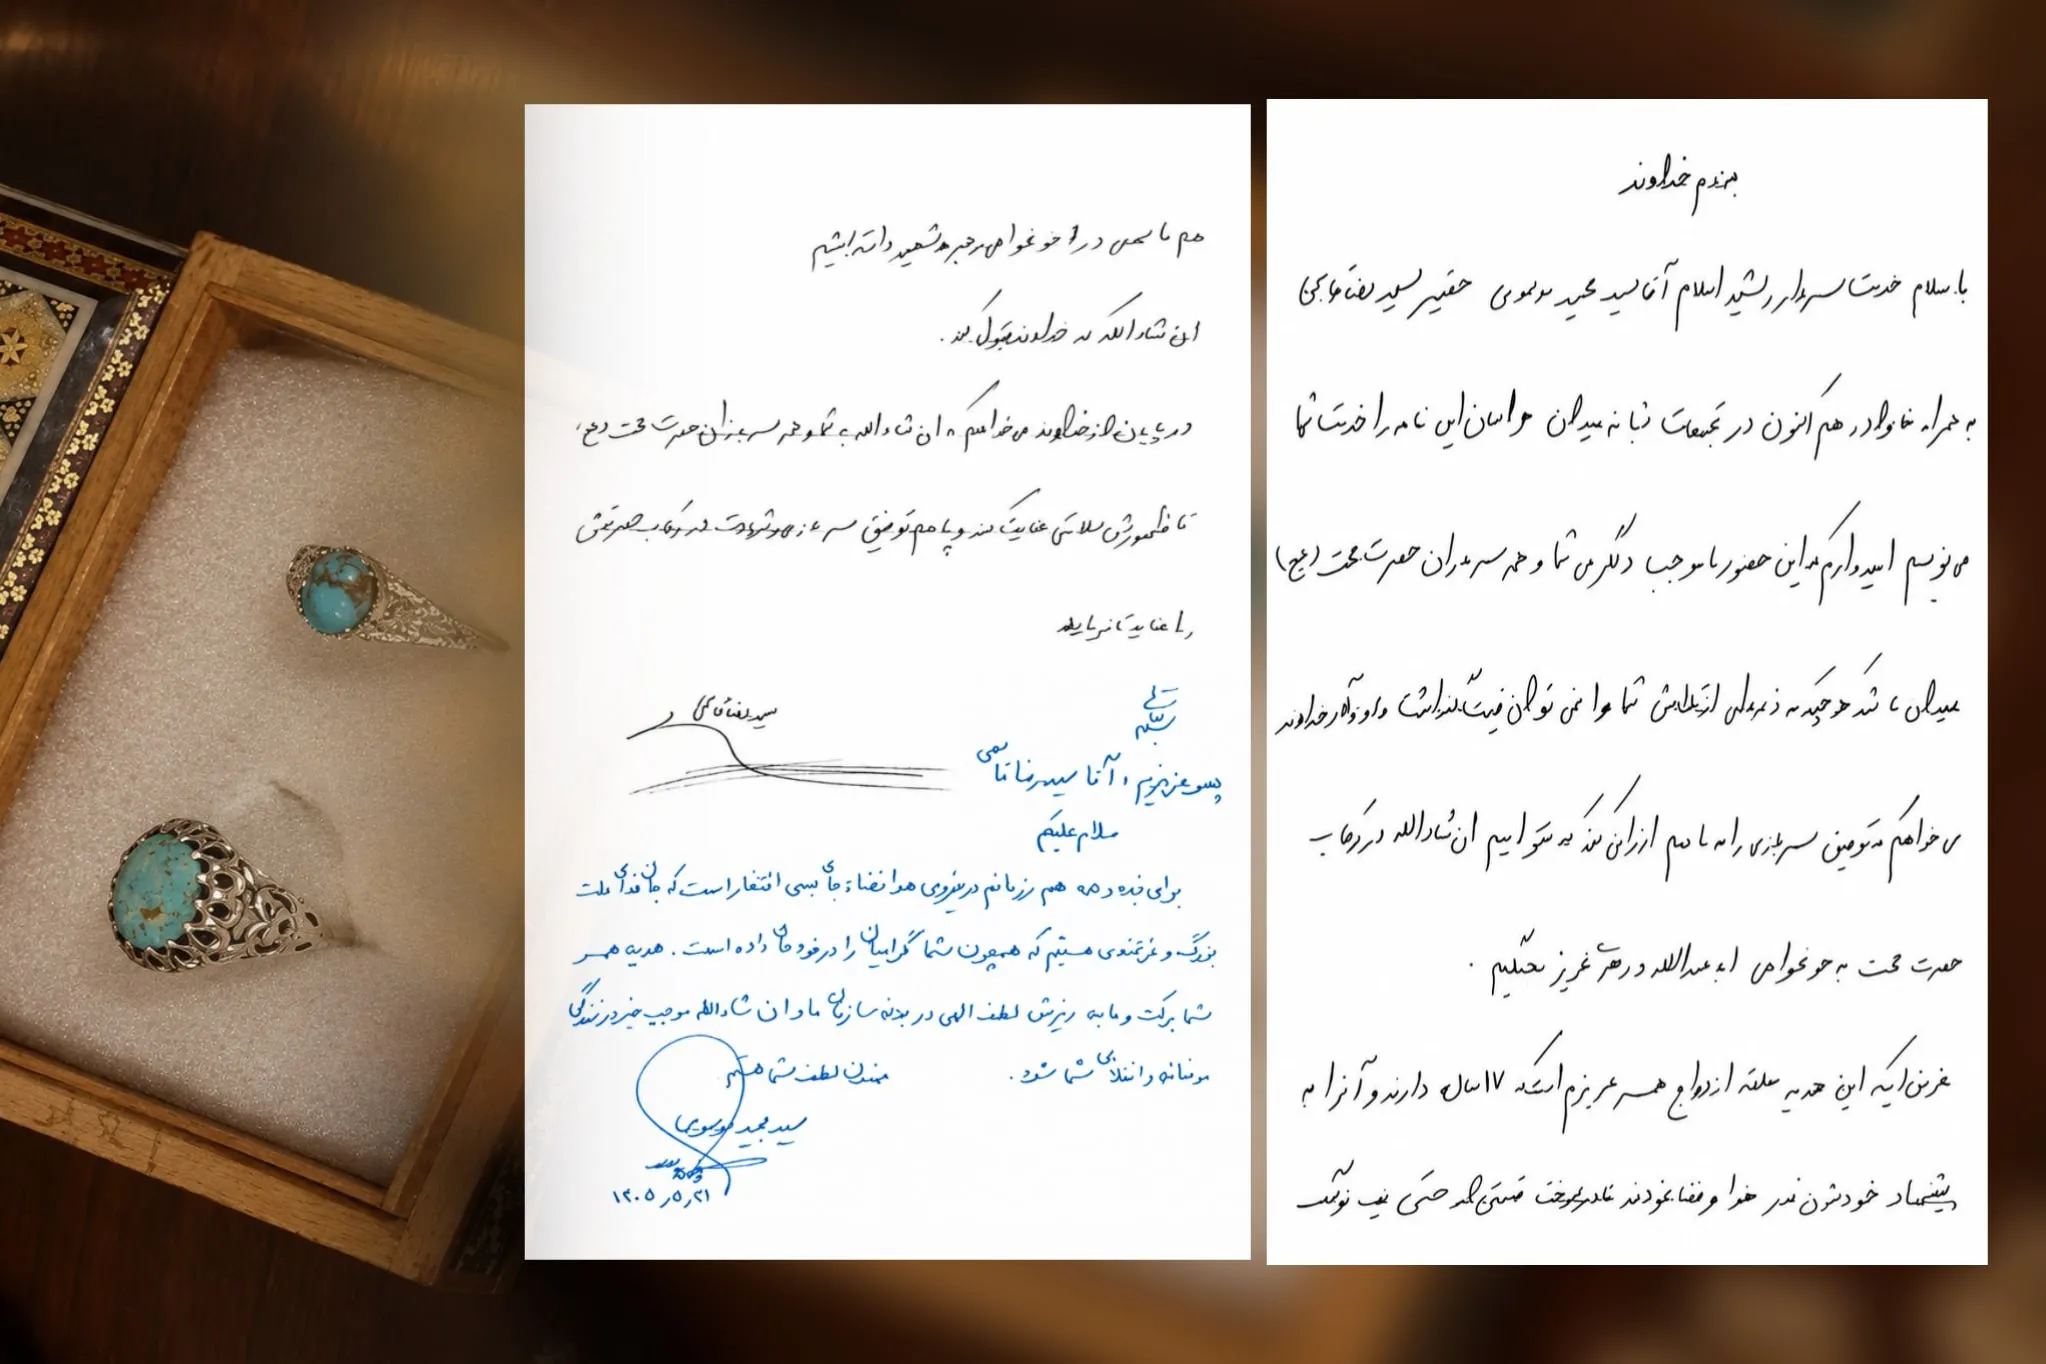 بنام خداوند
با سلام خدمت سردار رشید اسلام آقا سید مجید موسوی حقیر سید رضا قاسمی
به همراه خانواده هم اکنون در تجمعات شبانه میدان این نامه را خدمت شما
می نویسم امیدوارم که این حضور ما موجب دلگرمی شما و همه سربازان حضرت حجت (عج)
میدان باشد هرچند که ذره ای از شما را نمی توان قیمت گذاشت و از خداوند
می خواهم که توفیق سربازی را به ما هم ارزانی کند که بتوانیم ان شاءالله در رکاب
حضرت حجت به خونخواهی ابا عبدالله و رهبر عزیز بجنگیم .
غرض اینکه این هدیه حلقه ازدواج همسر عزیزم است که ۱۷ سال دارند و آنرا به
پیشنهاد خودشون نذر هوا و فضا نمودند
هم ما سهمی در خونخواهی رهبر شهید داشته باشیم
ان شاءالله که خداوند قبول کند .
در پایان از خداوند می خواهم که ان شاءالله به شما و همه سربازان حضرت حجت (عج)
تا ظهورش سلامتی عنایت کند و به ما هم توفیق سربازی و شهادت در رکاب حضرتش
را عنایت فرماید
سید رضا قاسمی
پسر عزیزم ، آقا سید رضا قاسمی
سلام علیکم
برای بنده و همه هم رزمانم در نیروی هوافضا جای بسی افتخار است که جان فدای ملت
بزرگ و عزتمندی هستیم که همچون شما گرامیان را در خود جای داده است . هدیه همسر
شما برکت و مایه ریزش لطف الهی در بدنه سازمان ما و ان شاءالله موجب خیر در زندگی
مومنانه و انقلابی شما شود . ممنون لطف شما هستم
سید مجید موسوی
۱۴۰۵٫۵٫۲۱